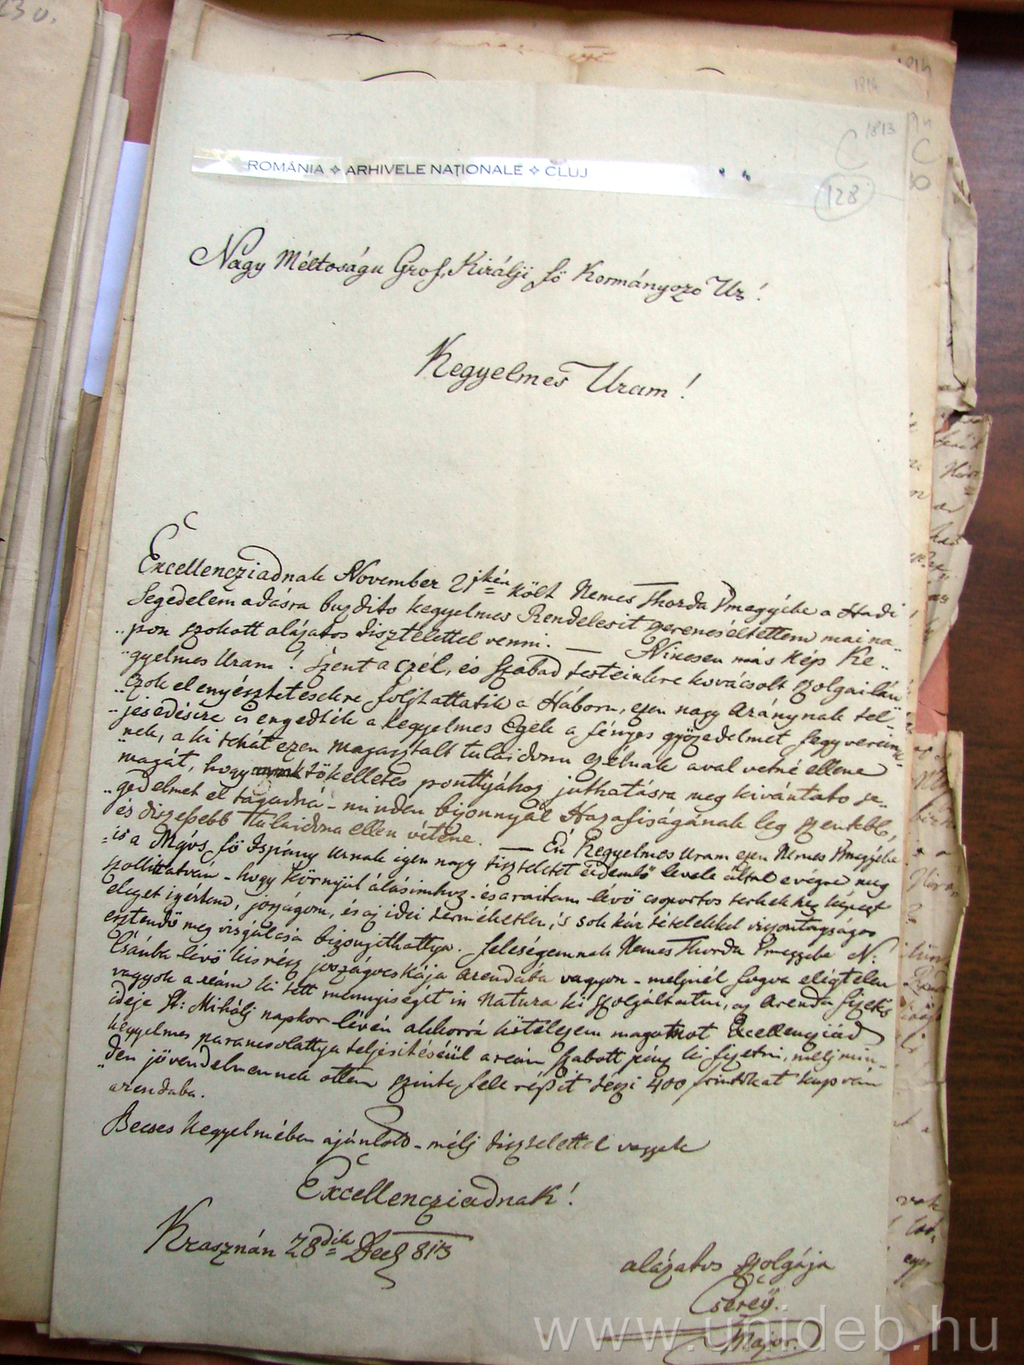 1813
128
ROMÁNIA ❖ ARHIVELE NAȚIONALE ❖ CLUJ
Nagy Méltoságu Grof, Királji fö Kormányozo Ur!
Kegyelmes Uram!
Excellencziadnak November 21ikén költ Nemes Thorda Vmegyébe a Hadi
Segedelem adásra buzdito kegyelmes Rendelesit szerencséltettem mai na-
pon szokott alázatos tisztelettel venni. — Nincsen más kép Ke-
gyelmes Uram! Szent a czél, és Szabad testeinkre kovácsolt szolgai lán
czok elenyésztetésekre folytattatik a Háboru, ezen nagy aránynak tel-
jesedésére is engedték a kegyelmes Egek a fényes gyözedelmet fegyverein-
nek, a ki tehát ezen magasztalt tulaidonu czélnak aval vetné ellene
magát, hogy tökélletes ponttyához juthatásra meg kivántato se-
gedelmet el tagadná - minden bizonnyál Hazafiságának leg szentebb,
és diszessebb tulaidona ellen vétene. — Én Kegyelmes Uram ezen Nemes Vmegyébe
is a Mgos fö Ispány Urnak igen nagy tiszteletet érdemlö levele által e végre meg
szollittatván - hogy környül álásimhoz - és araitam lévö csoportos terhekhez képest
eleget igértem, joszagom, és az idei termékettlen, 's sok kár tételekkel viszontagságos
esztendö meg visgálása bizonjithattya. Feleségemnek Nemes Thorda Vmegyebe N:
Csánba lévö kis rész joszágocskája arendába vagyon - melynél fogva elégtelen
vagyok a reám ki tett mennyiségét in Natura ki szolgáltatni, az Arenda fizetés
ideje St: Mihálj napkor lévén akkorrá kötelezem magamot Excellencziád
kegyelmes parancsolattya teljesitésérül a reám szabott pénz ki fizetni, melj min-
den jövendelmemnek ottan szinte fele részit teszi 400 frintokat kapván
arendaba.
Becses kegyelmében ajánlott - mélj tisztelettel vagyok
Excellencziadnak!
Krasznán 28dik Decb 813
alázatos szolgája
Cserey
Major
www.unideb.hu